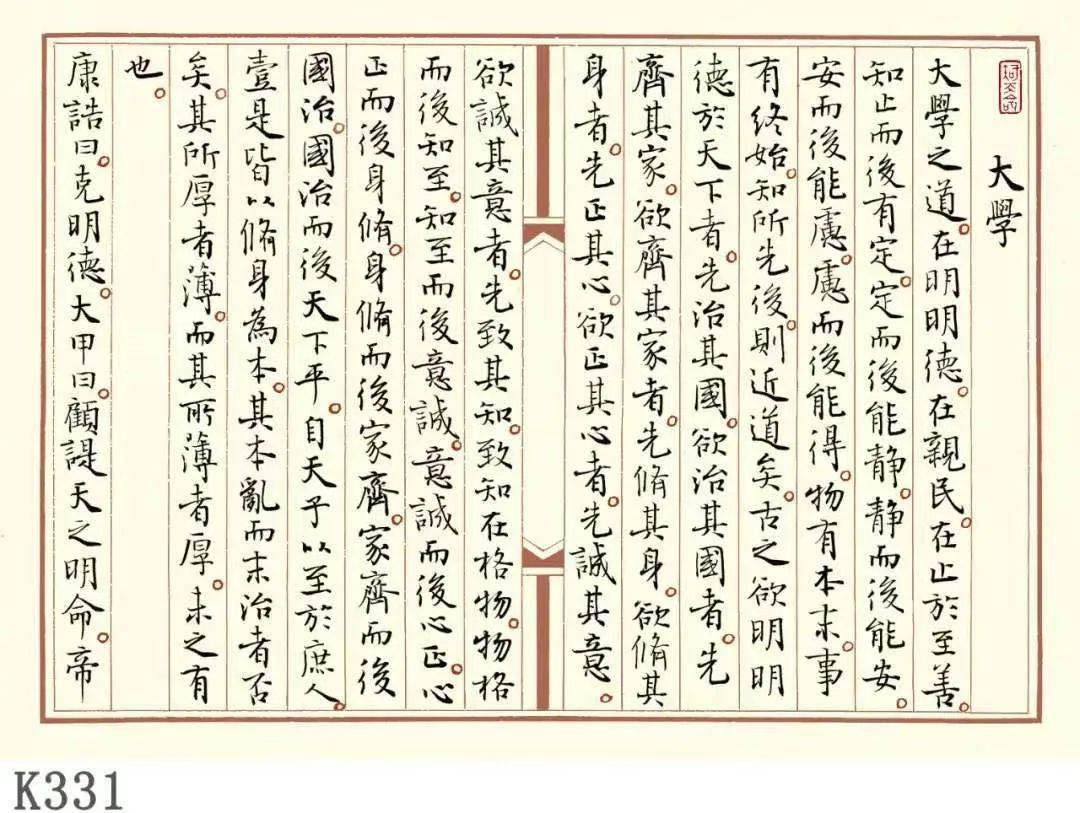 大學
大學之道。在明明德。在親民。在止於至善。
知止而後有定。定而後能静。静而後能安。
安而後能慮。慮而後能得。物有本末。事
有終始。知所先後。則近道矣。古之欲明明
德於天下者。先治其國。欲治其國者。先
齊其家。欲齊其家者。先脩其身。欲脩其
身者。先正其心。欲正其心者。先誠其意。
欲誠其意者。先致其知。致知在格物。物格
而後知至。知至而後意誠。意誠而後心正。心
正而後身脩。身脩而後家齊。家齊而後
國治。國治而後天下平。自天子以至於庶人。
壹是皆以脩身為本。其本亂而末治者否
矣。其所厚者薄。而其所薄者厚。未之有
也。
康誥曰。克明德。大甲曰。顧諟天之明命。帝
K331